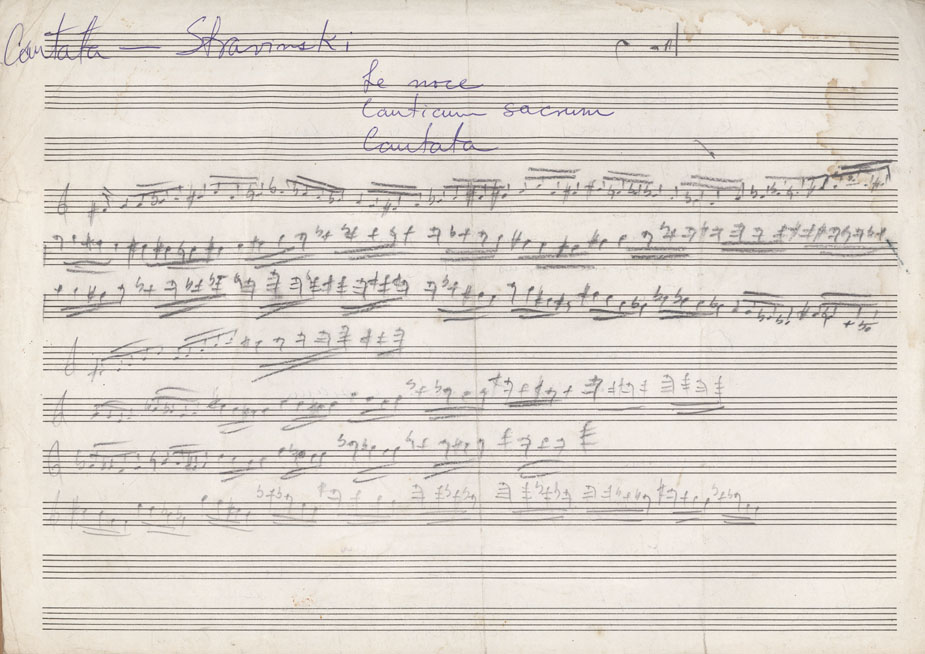 Cantata — Stravinski
Le noce
Canticum sacrum
Cantata